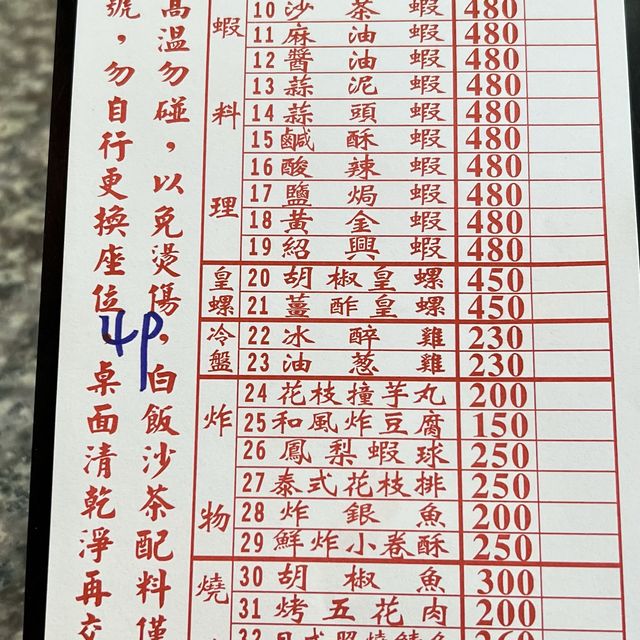 高溫勿碰，以免燙傷，白飯沙茶配料僅
號，勿自行更換座位，桌面清乾淨再交
4P
蝦料理
10 沙茶蝦 480
11 麻油蝦 480
12 醬油蝦 480
13 蒜泥蝦 480
14 蒜頭蝦 480
15 鹹酥蝦 480
16 酸辣蝦 480
17 鹽焗蝦 480
18 黃金蝦 480
19 紹興蝦 480
皇螺
20 胡椒皇螺 450
21 薑酢皇螺 450
冷盤
22 冰醉雞 230
23 油蔥雞 230
炸物
24 花枝撞芋丸 200
25 和風炸豆腐 150
26 鳳梨蝦球 250
27 泰式花枝排 250
28 炸銀魚 200
29 鮮炸小卷酥 250
燒
30 胡椒魚 300
31 烤五花肉 200
32 日式照燒鯖魚 260